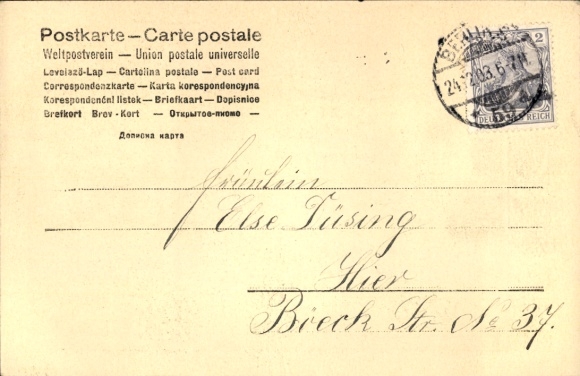 Postkarte — Carte postale
Weltpostverein — Union postale universelle
Levelező-Lap — Cartolina postale — Post card
Correspondenzkarte — Karta korespondencyjna
Korespondenční lístek — Briefkaart — Dopisnice
Brefkort Brev-Kort — Открытое-письмо —
Дописна карта
BERLIN
24.12.03. 6-7N.
59
2
DEUTSCHES REICH
Fräulein
Else Füsing
Hier
Böeck Str. No 37.